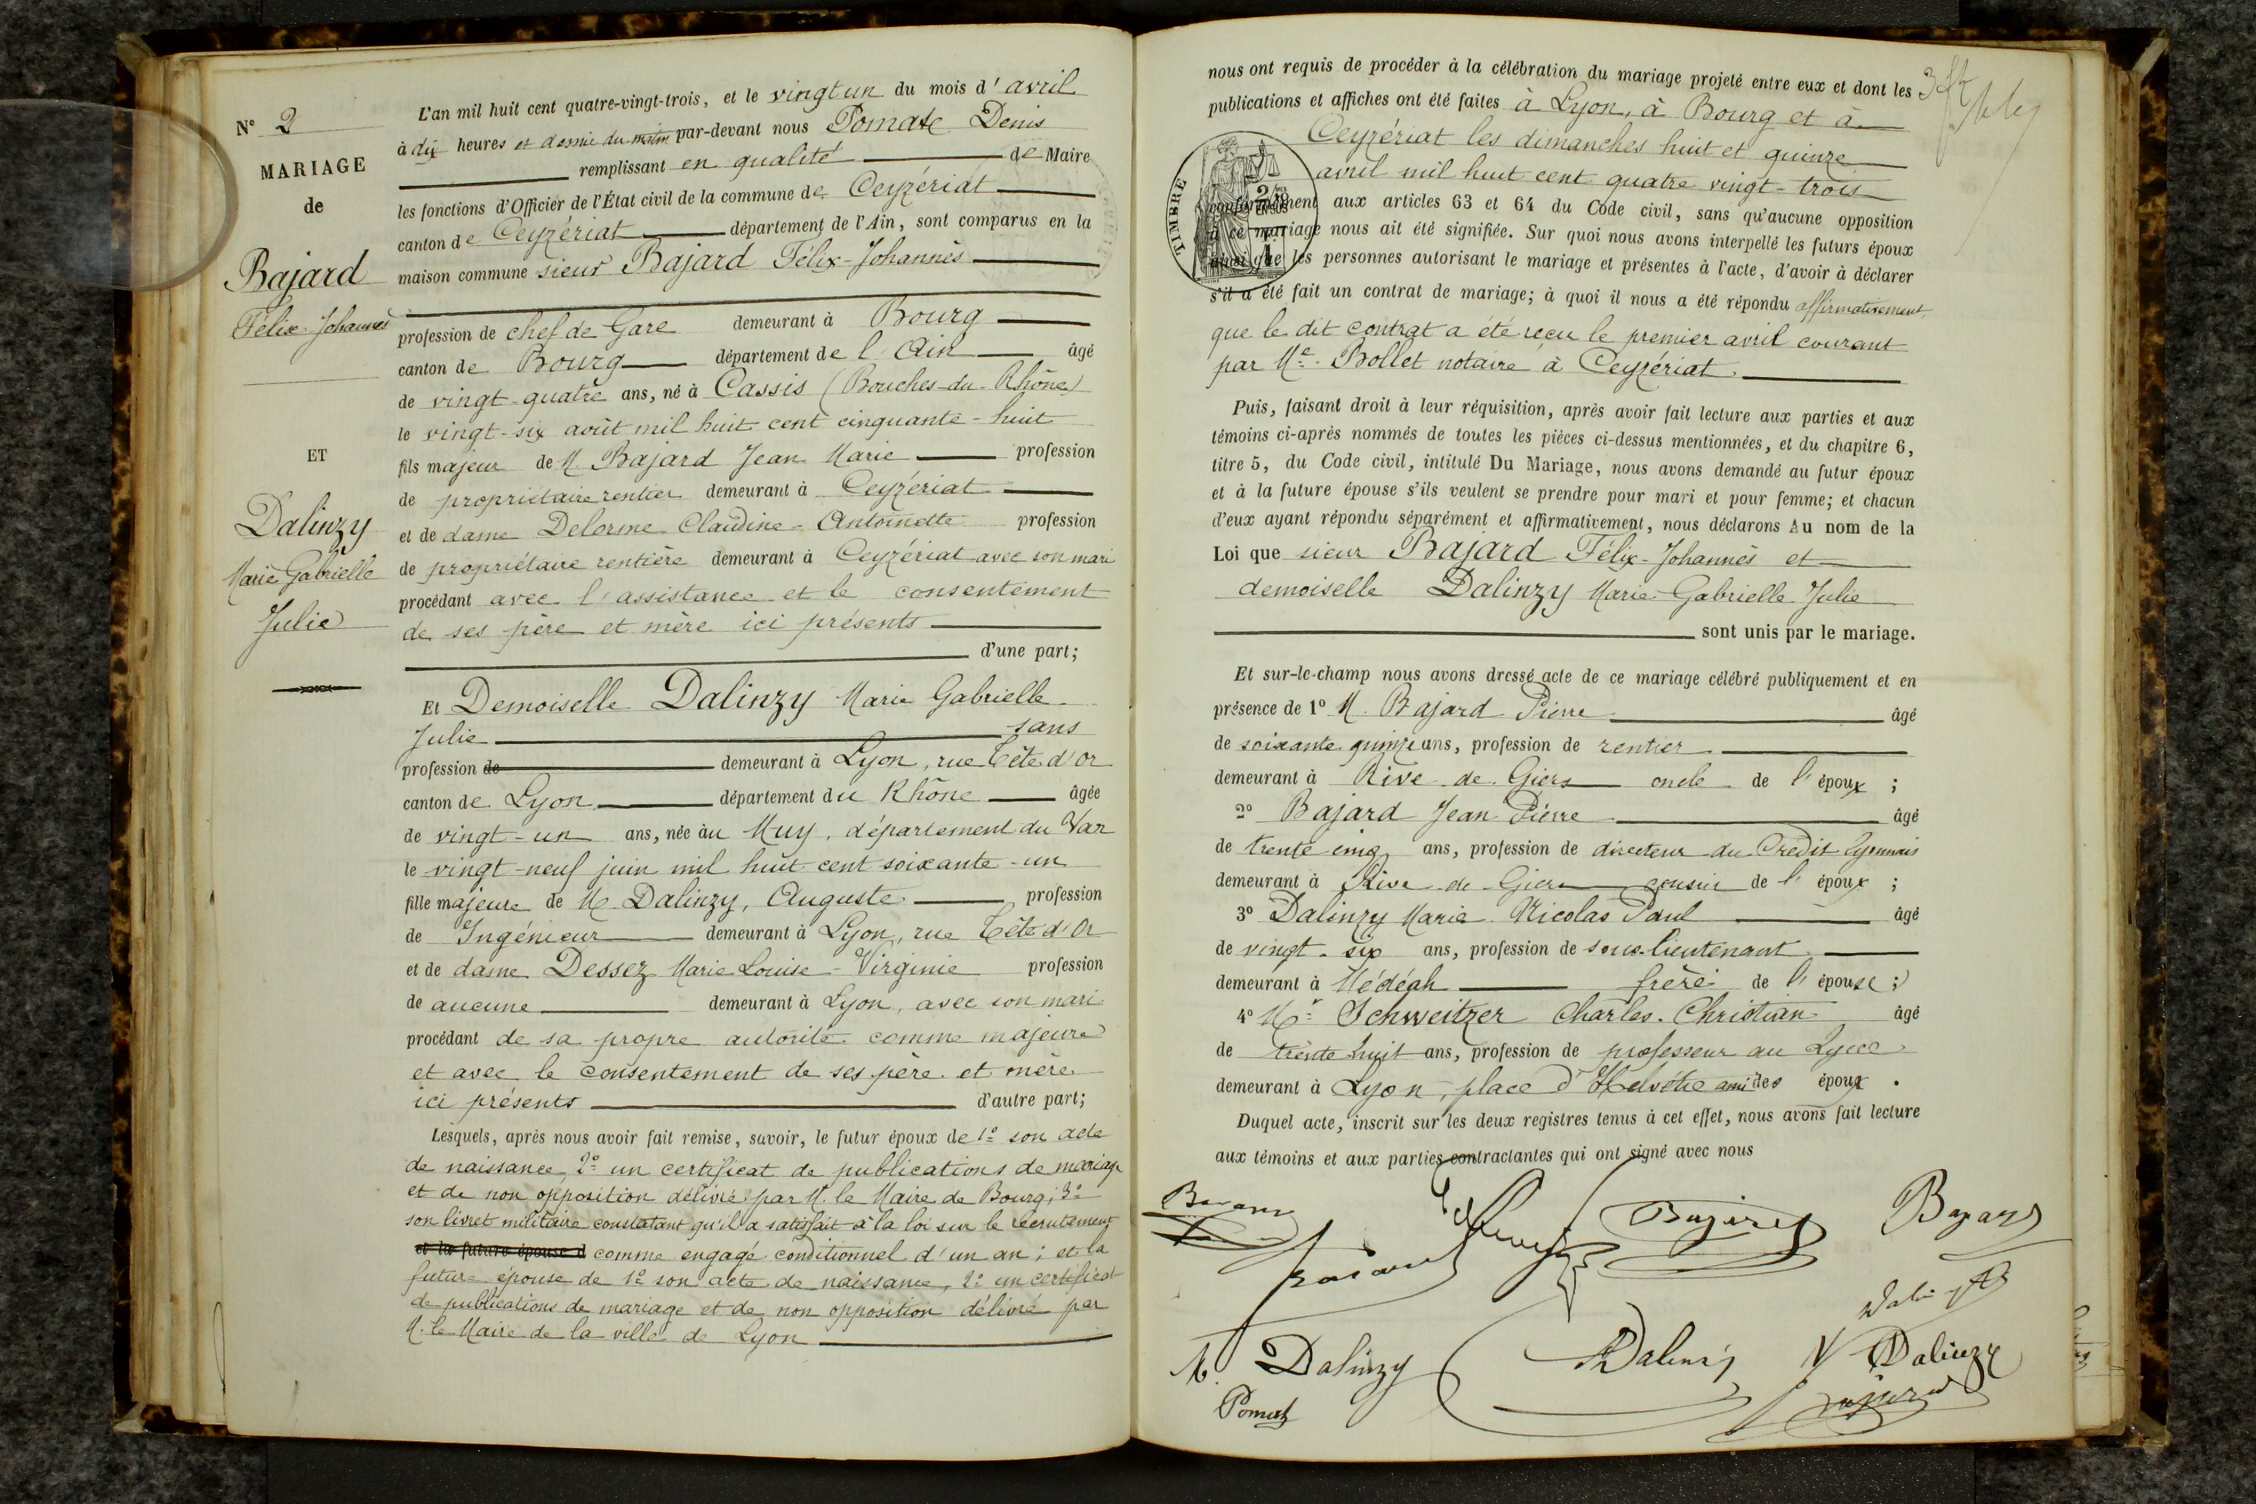 N° 2
MARIAGE
de
Bajard
Félix-Johannès
ET
Dalinzy
Marie Gabrielle
Julie
L'an mil huit cent quatre-vingt-trois, et le vingt un du mois d'avril
à dix heures et demie du matin par-devant nous Pomate Denis
remplissant en qualité de Maire
les fonctions d'Officier de l'État civil de la commune de Ceyzériat
canton de Ceyzériat département de l'Ain, sont comparus en la
maison commune sieur Bajard Félix-Johannès
profession de chef de Gare demeurant à Bourg
canton de Bourg département de l'Ain âgé
de vingt-quatre ans, né à Cassis (Bouches-du-Rhône)
le vingt-six août mil huit cent cinquante-huit
fils majeur de M. Bajard Jean Marie profession
de propriétaire rentier demeurant à Ceyzériat
et de dame Delorme Claudine-Antoinette profession
de propriétaire rentière demeurant à Ceyzériat avec son mari
procédant avec l'assistance et le consentement
de ses père et mère ici présents
d'une part;
Et Demoiselle Dalinzy Marie Gabrielle
Julie sans
profession de demeurant à Lyon, rue Tête d'Or
canton de Lyon département du Rhône âgée
de vingt-un ans, née au Muy, département du Var
le vingt-neuf juin mil huit cent soixante-un
fille majeure de M. Dalinzy, Auguste profession
de Ingénieur demeurant à Lyon, rue Tête d'Or
et de dame Dessez Marie Louise-Virginie profession
de aucune demeurant à Lyon, avec son mari
procédant de sa propre autorité comme majeure
et avec le consentement de ses père et mère
ici présents d'autre part;
Lesquels, après nous avoir fait remise, savoir, le futur époux de 1° son acte
de naissance, 2° un certificat de publications de mariage
et de non opposition délivré par M. le Maire de Bourg; 3°
son livret militaire constatant qu'il a satisfait à la loi sur le recrutement
et la future épouse d comme engagé conditionnel d'un an; et la
future épouse de 1° son acte de naissance, 2° un certificat
de publications de mariage et de non opposition délivré par
M. le Maire de la ville de Lyon
nous ont requis de procéder à la célébration du mariage projeté entre eux et dont les
publications et affiches ont été faites à Lyon, à Bourg et à
Ceyzériat les dimanches huit et quinze
avril mil huit cent quatre vingt-trois
TIMBRE
conformément aux articles 63 et 64 du Code civil, sans qu'aucune opposition
à ce mariage nous ait été signifiée. Sur quoi nous avons interpellé les futurs époux
ainsi que les personnes autorisant le mariage et présentes à l'acte, d'avoir à déclarer
s'il a été fait un contrat de mariage; à quoi il nous a été répondu affirmativement,
que le dit contrat a été reçu le premier avril courant
par Me. Bollet notaire à Ceyzériat.
Puis, faisant droit à leur réquisition, après avoir fait lecture aux parties et aux
témoins ci-après nommés de toutes les pièces ci-dessus mentionnées, et du chapitre 6,
titre 5, du Code civil, intitulé Du Mariage, nous avons demandé au futur époux
et à la future épouse s'ils veulent se prendre pour mari et pour femme; et chacun
d'eux ayant répondu séparément et affirmativement, nous déclarons Au nom de la
Loi que sieur Bajard Félix-Johannès et
demoiselle Dalinzy Marie-Gabrielle Julie
sont unis par le mariage.
Et sur-le-champ nous avons dressé acte de ce mariage célébré publiquement et en
présence de 1° M. Bajard Pierre âgé
de soixante quinze ans, profession de rentier
demeurant à Rive de Giers oncle de l'époux;
2° Bajard Jean Pierre âgé
de trente cinq ans, profession de directeur du Crédit Lyonnais
demeurant à Rive de Giers cousin de l'époux;
3° Dalinzy Marie Nicolas Paul âgé
de vingt-six ans, profession de sous-lieutenant
demeurant à Médéah frère de l'épouse;
4° Mr. Schweitzer Charles-Christian âgé
de trente huit ans, profession de professeur au Lycée
demeurant à Lyon, place d'Helvétie ami des époux.
Duquel acte, inscrit sur les deux registres tenus à cet effet, nous avons fait lecture
aux témoins et aux parties contractantes qui ont signé avec nous
Bajard Bajard
M. Dalinzy Dalinzy Dalinzy
Pomate